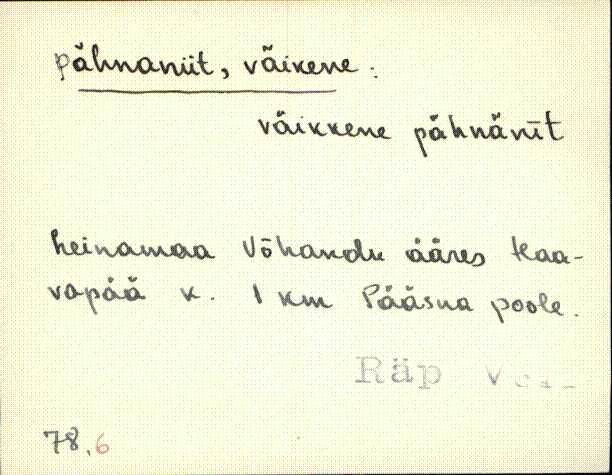 pähnaniit, väikene :
väikkene pähnänīt
heinamaa Võhandu ääres Haa-
vapää k. 1 km Pääsna poole.
Räp
78.6